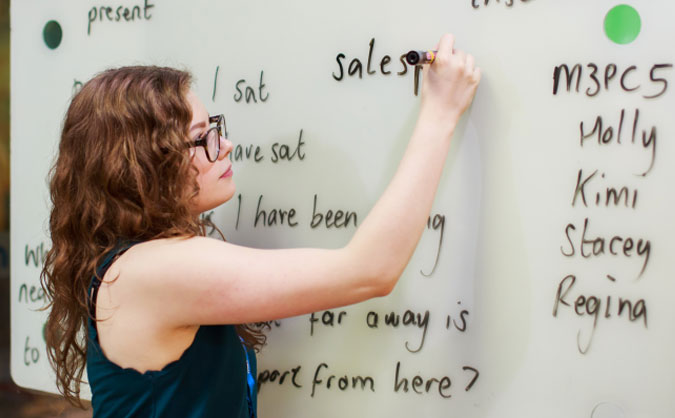 present
sales
I sat
ave sat
I have been
far away is
to
from here ?
M3PC5
Holly
Kimi
Stacey
Regina